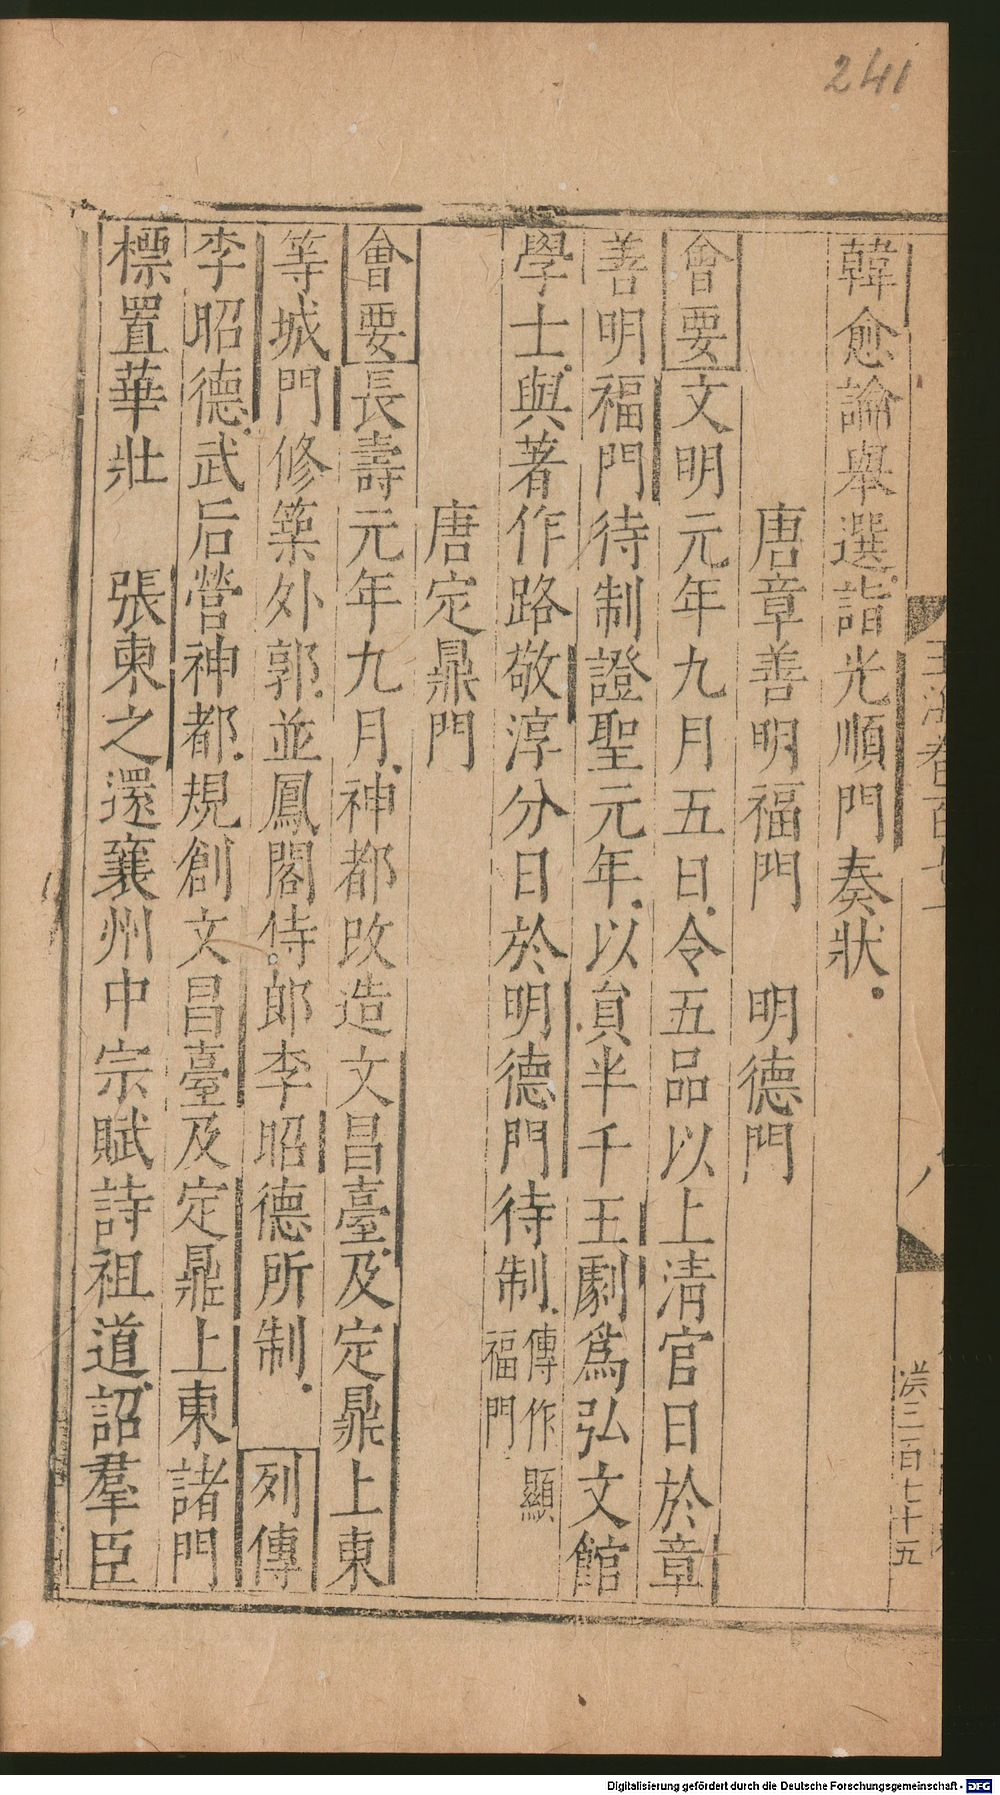 241
韓愈論舉選詣光順門奏狀
唐章善明福門　明德門
會要文明元年九月五日令五品以上清官日於章
善明福門待制證聖元年以貟半千王劇爲弘文館
學士與著作路敬淳分日於明德門待制傳作顯
福門
唐定鼎門
會要長壽元年九月神都改造文昌臺及定鼎上東
等城門修築外郭並鳳閣侍郎李昭德所制　列傳
李昭德武后營神都規創文昌臺及定鼎上東諸門
標置華壯　張柬之還襄州中宗賦詩祖道詔羣臣
三百七十五
Digitalisierung gefördert durch die Deutsche Forschungsgemeinschaft - DFG